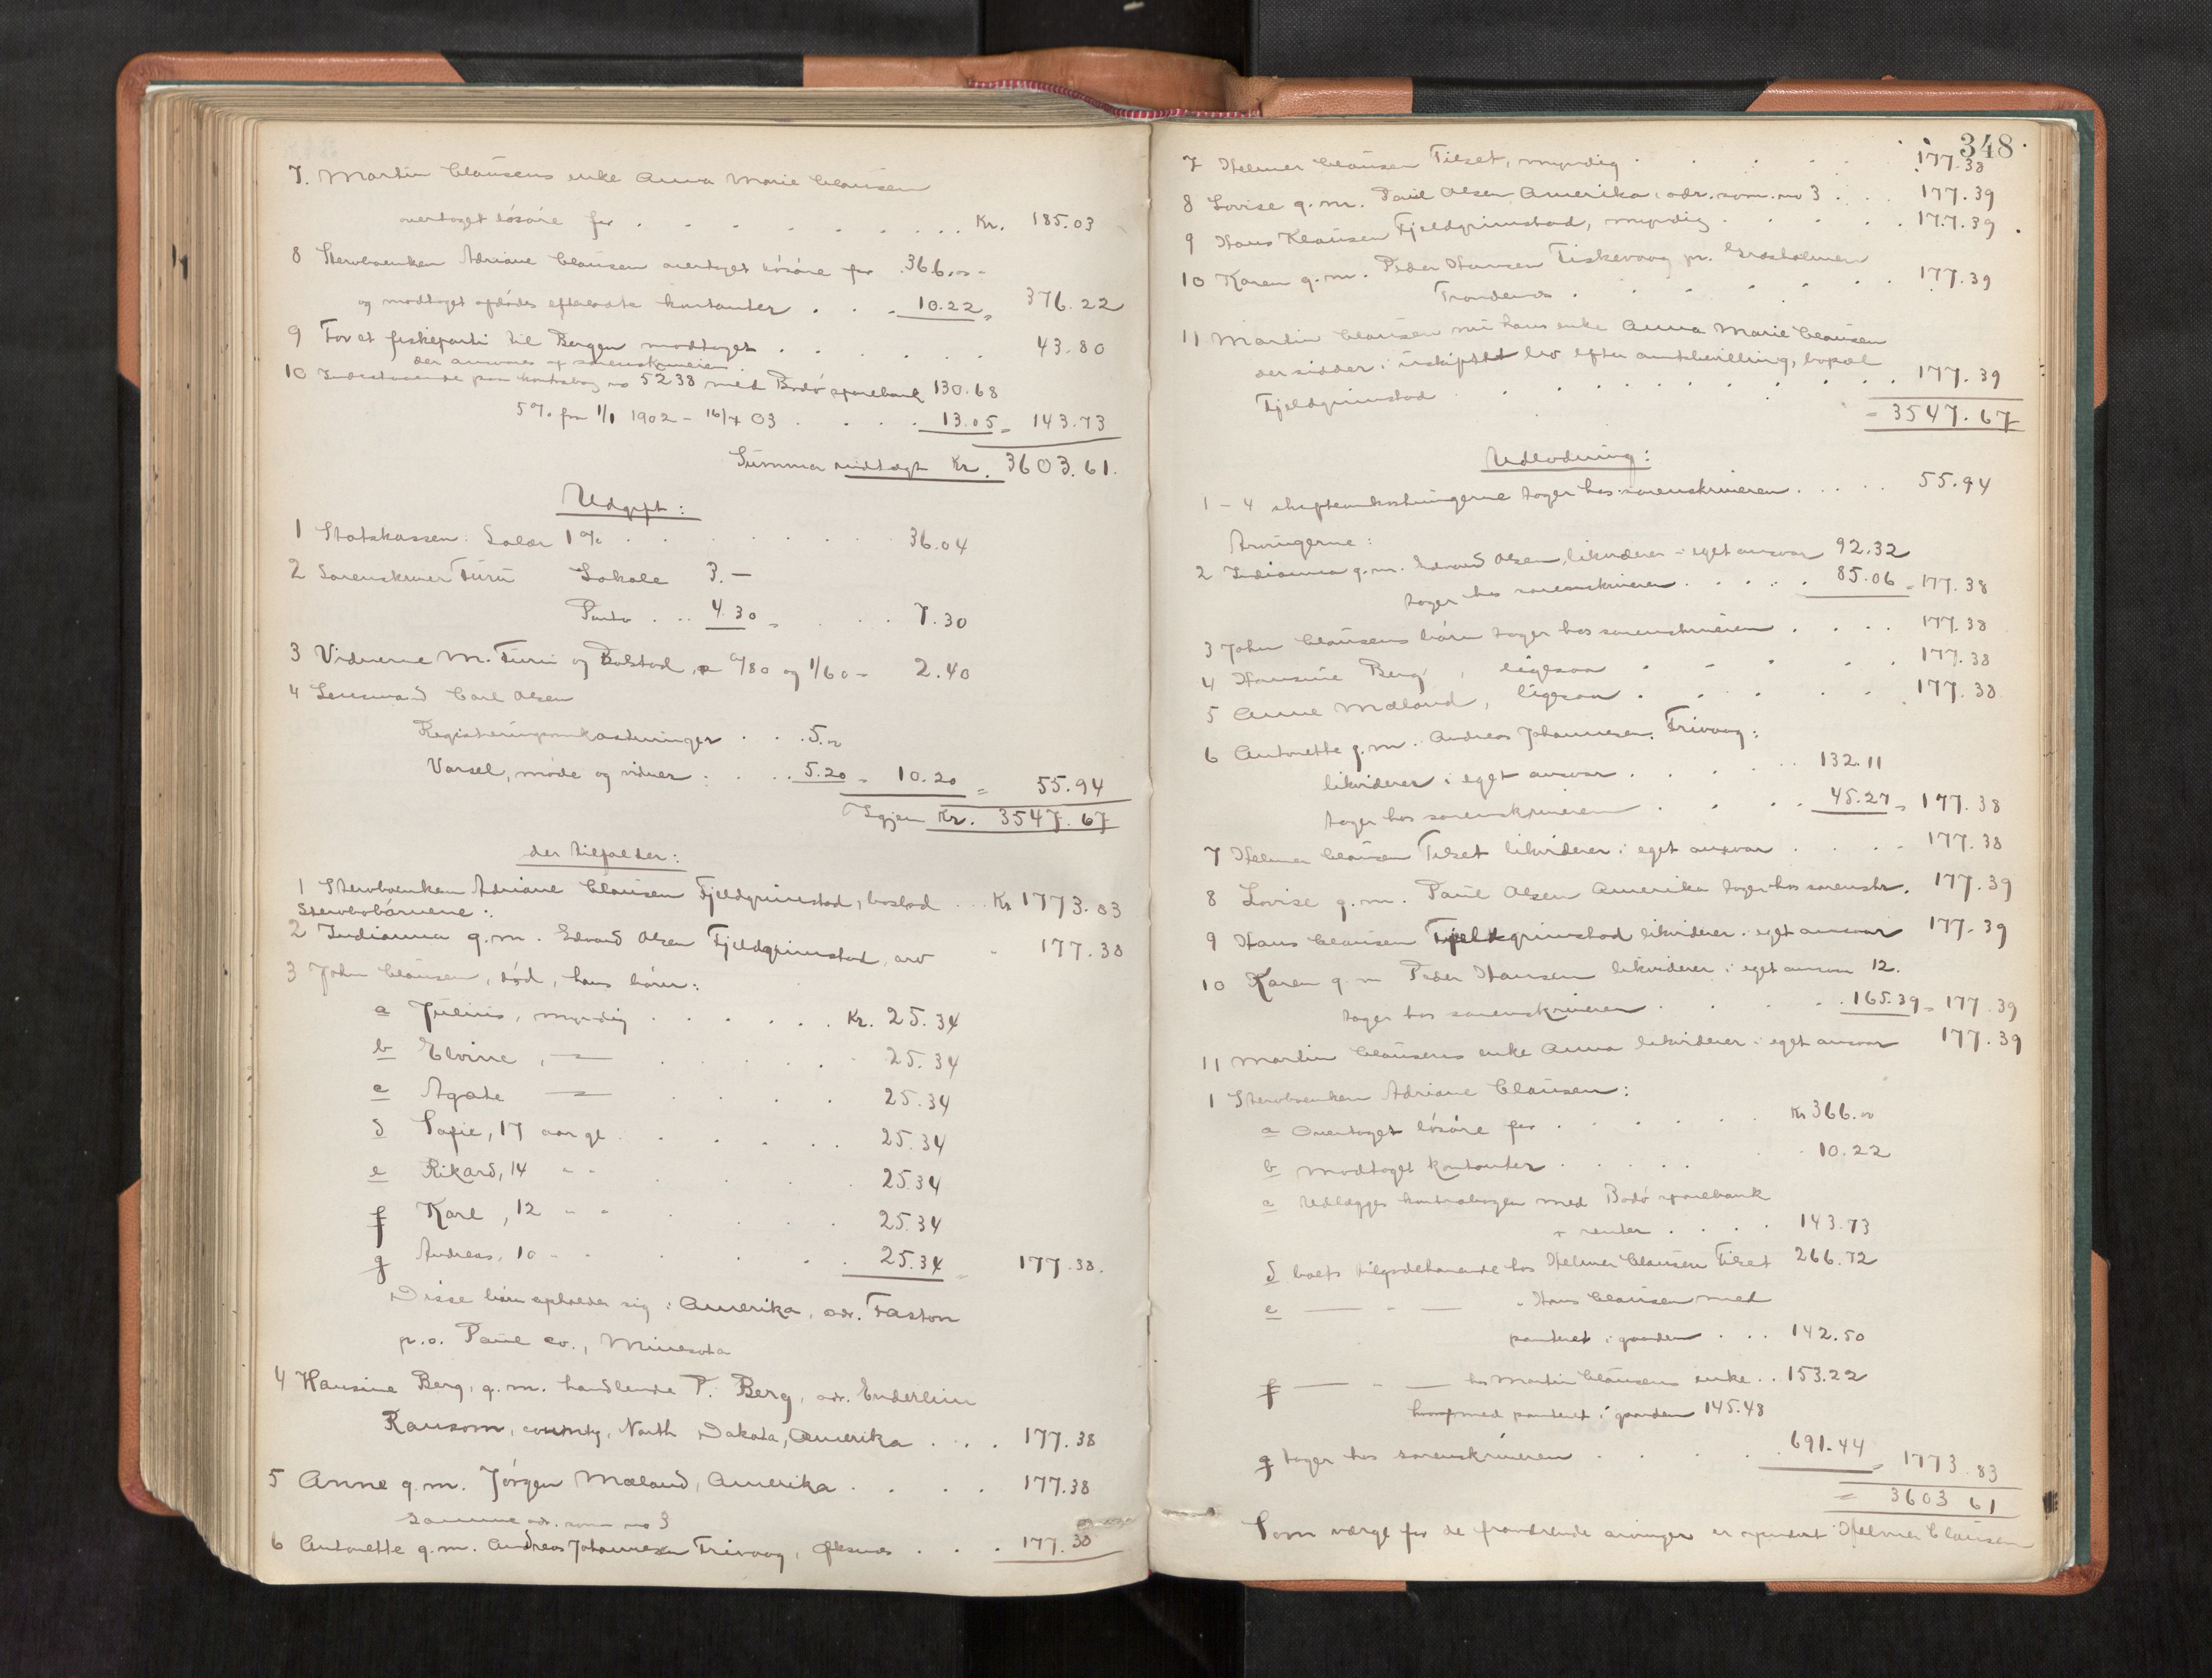 7. Martin Clausens enke Anna Marie Clausen
overtaget løsøre for . . . . . . . . . Kr. 185.03
8 Stervboenken Adriane Clausen overtaget løsøre for 366.00
og modtaget afdødes efterladte kontanter . . . 10.22 = 376.22
9 For et fiskeparti til Bergen modtaget . . . . . . 43.80
der ansvares af sorenskriveren
10 Indestaaende paa kontrabog no 5238 med Bodø sparebank 130.68
5% fra 1/1 1902 - 16/4 03 . . . . 13.05 = 143.73
Summa indtægt Kr. 3603.61.
Udgift:
1 Statskassen: Salær 1% . . . . . . . 36.04
2 Sorenskriver Juru Lokale 3.—
Porto . . 4.30 = . . . 7.30
3 Vidnerne M. Juru og Bolstad, a /80 og 1/60 = 2.40
4 Lensmand Carl Olsen
Registreringsomkostninger . . . 5.00
Varsel, møde og vidner . . . 5.20 = 10.20 = 55.94
Igjen Kr. 3547.67
der tilfalder:
1 Stervboenken Adriane Clausen Fjeldgrimstad, boslod . . . Kr 1773.83
Stervbobørnene:
2 Indianna g.m. Edvard Olsen Fjeldgrimstad, arv - 177.38
3 John Clausen, død, hans børn:
a Julius, myndig . . . . . . Kr. 25.34
b Elvine, — . . . . . 25.34
c Agate — . . . . 25.34
d Sofie, 17 aar gl. . . . . . 25.34
e Rikard, 14 " " . . . . 25.34
f Karl, 12 " " . . . . 25.34
g Andreas, 10 " " . . . 25.34 = 177.38.
Disse børn opholder sig i Amerika, adr. Faston
p.o. Paul co., Minesota
4 Hansine Berg, g.m. handlende P. Berg, adr. Enderlin
Ransom, county, North Dakota, Amerika . . . 177.38
5 Anne g.m. Jørgen Mæland, Amerika . . . . 177.38
samme adr. som no 3
6 Antonette g.m. Andreas Johannesen Trivaag, Øksnes . . . 177.38
348
7 Helmer Clausen Tilset, myndig . . . . . . 177.38
8 Lovise g.m. Paul Olsen Amerika, adr. som no 3 . . . 177.39
9 Hans Klausen Fjeldgrimstad, myndig . . . . . 177.39
10 Karen g.m. Peder Hansen Fiskevaag pr. Grøsholmen
Trondenes . . . . . . . . 177.39
11 Martin Clausen nu hans enke Anna Marie Clausen
der sidder i uskiftet bo efter amtsbevilling, bopæl
Fjeldgrimstad . . . . . . . . . 177.39
= 3547.67
Udlodning:
1 - 4 skifteomkostningerne tager hos sorenskriveren . . . . . 55.94
Arvingerne:
2 Indianna g.m. Edvard Olsen, likviderer i eget ansvar 92.32
tager hos sorenskriveren . . . . . 85.06 = 177.38
3 John Clausens børn tager hos sorenskriveren . . . . 177.38
4 Hansine Berg, ligesaa . . . . . 177.38
5 Anne Mæland, ligesaa . . . . . 177.38
6 Antonette g.m. Andreas Johannesen Trivaag:
likviderer i eget ansvar . . . . . . 132.11
tager hos sorenskriveren . . . . 45.27 = 177.38
7 Helmer Clausen Tilset likviderer i eget ansvar . . . . 177.38
8 Lovise g.m. Paul Olsen Amerika tager hos sorenskr. 177.39
9 Hans Clausen Fjeldgrimstad likviderer i eget ansvar 177.39
10 Karen g.m Peder Hansen likviderer i eget ansvar 12.
tager hos sorenskriveren . . . . . 165.39 = 177.39
11 Martin Clausens enke Anna likviderer i eget ansvar 177.39
1 Stervboenken Adriane Clausen:
a Overtaget løsøre for . . . . . . Kr 366.00
b modtaget kontanter . . . . . . 10.22
c Udlægges kontrabogen med Bodø sparebank
+ renter . . . . 143.73
d boets tilgodehavende hos Helmer Clausen Tilset 266.72
e — " — " Hans Clausen med
panteret i gaarden . . . 142.50
f — " — hos Martin Clausens enke . . 153.22
hvoraf med panteret i gaarden 145.48
g tager hos sorenskriveren . . . . 691.44 = 1773.83
= 3603 61
Som værge for de fraværende arvinger er opnævnt Helmer Clausen